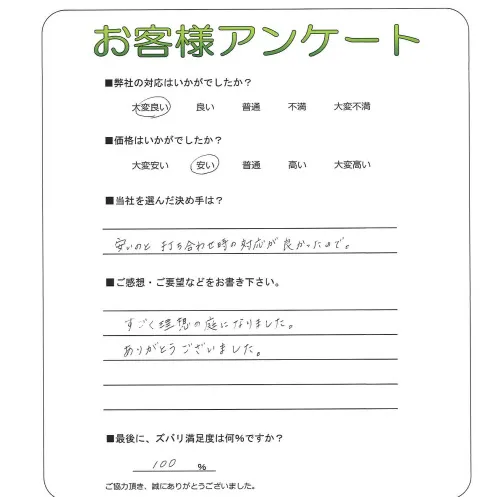 お客様アンケート
■弊社の対応はいかがでしたか？
大変良い 良い 普通 不満 大変不満
■価格はいかがでしたか？
大変安い 安い 普通 高い 大変高い
■当社を選んだ決め手は？
安いのと 打ち合わせ時の対応が良かったので。
■ご感想・ご要望などをお書き下さい。
すごく理想の庭になりました。
ありがとうございました。
■最後に、ズバリ満足度は何%ですか？
100 %
ご協力頂き、誠にありがとうございました。